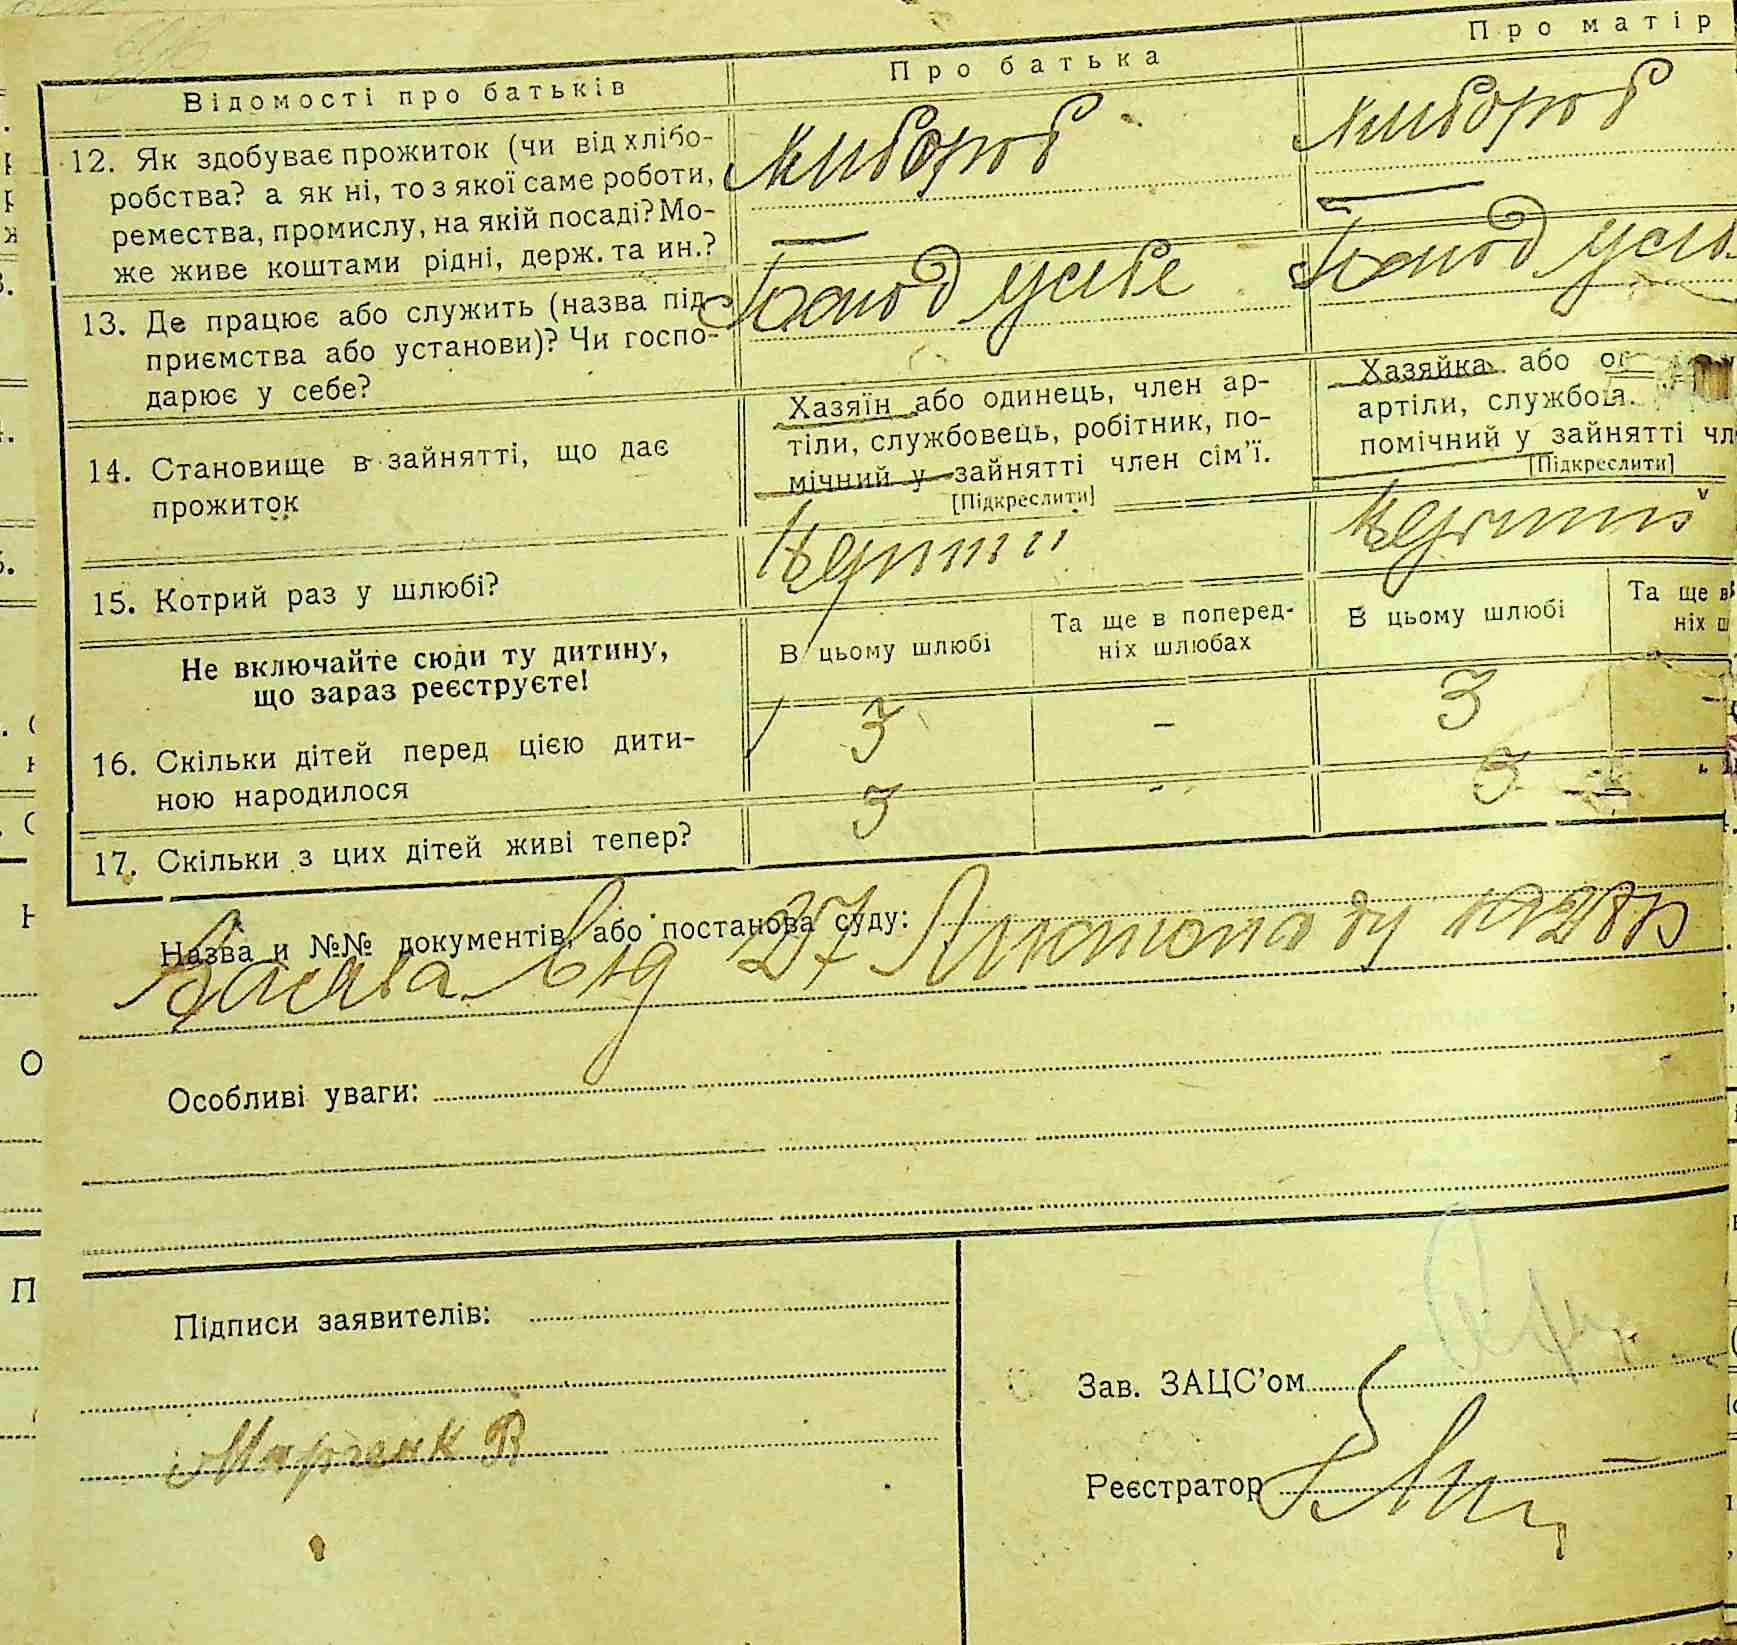 Відомості про батьків
Про батька
Про матір
12. Як здобуває прожиток (чи від хлібо-
робства? а як ні, то з якої саме роботи,
ремества, промислу, на якій посаді? Мо-
же живе коштами рідні, держ. та ин.?
хлібороб
хлібороб
13. Де працює або служить (назва під-
приємства або установи)? Чи госпо-
дарює у себе?
Господ у себе
Господ у
14. Становище в зайнятті, що дає
прожиток
Хазяїн або одинець, член ар-
тіли, службовець, робітник, по-
мічний у зайнятті член сім'ї.
[Підкреслити]
Хазяйка або
артіли, службов
помічний у зайнятті чл
[Підкреслити]
15. Котрий раз у шлюбі?
Перший
Перший
Не включайте сюди ту дитину,
що зараз реєструєте!
В цьому шлюбі
Та ще в поперед-
ніх шлюбах
В цьому шлюбі
Та ще в
ніх ш
16. Скільки дітей перед цією дити-
ною народилося
3
-
3
-
17. Скільки з цих дітей живі тепер?
3
-
3
Назва и №№ документів, або постанова суду:
Заява від 27 Листопаду 1928 р
Особливі уваги:
Підписи заявителів:
Марченк В
Зав. ЗАЦС'ом
Реєстратор